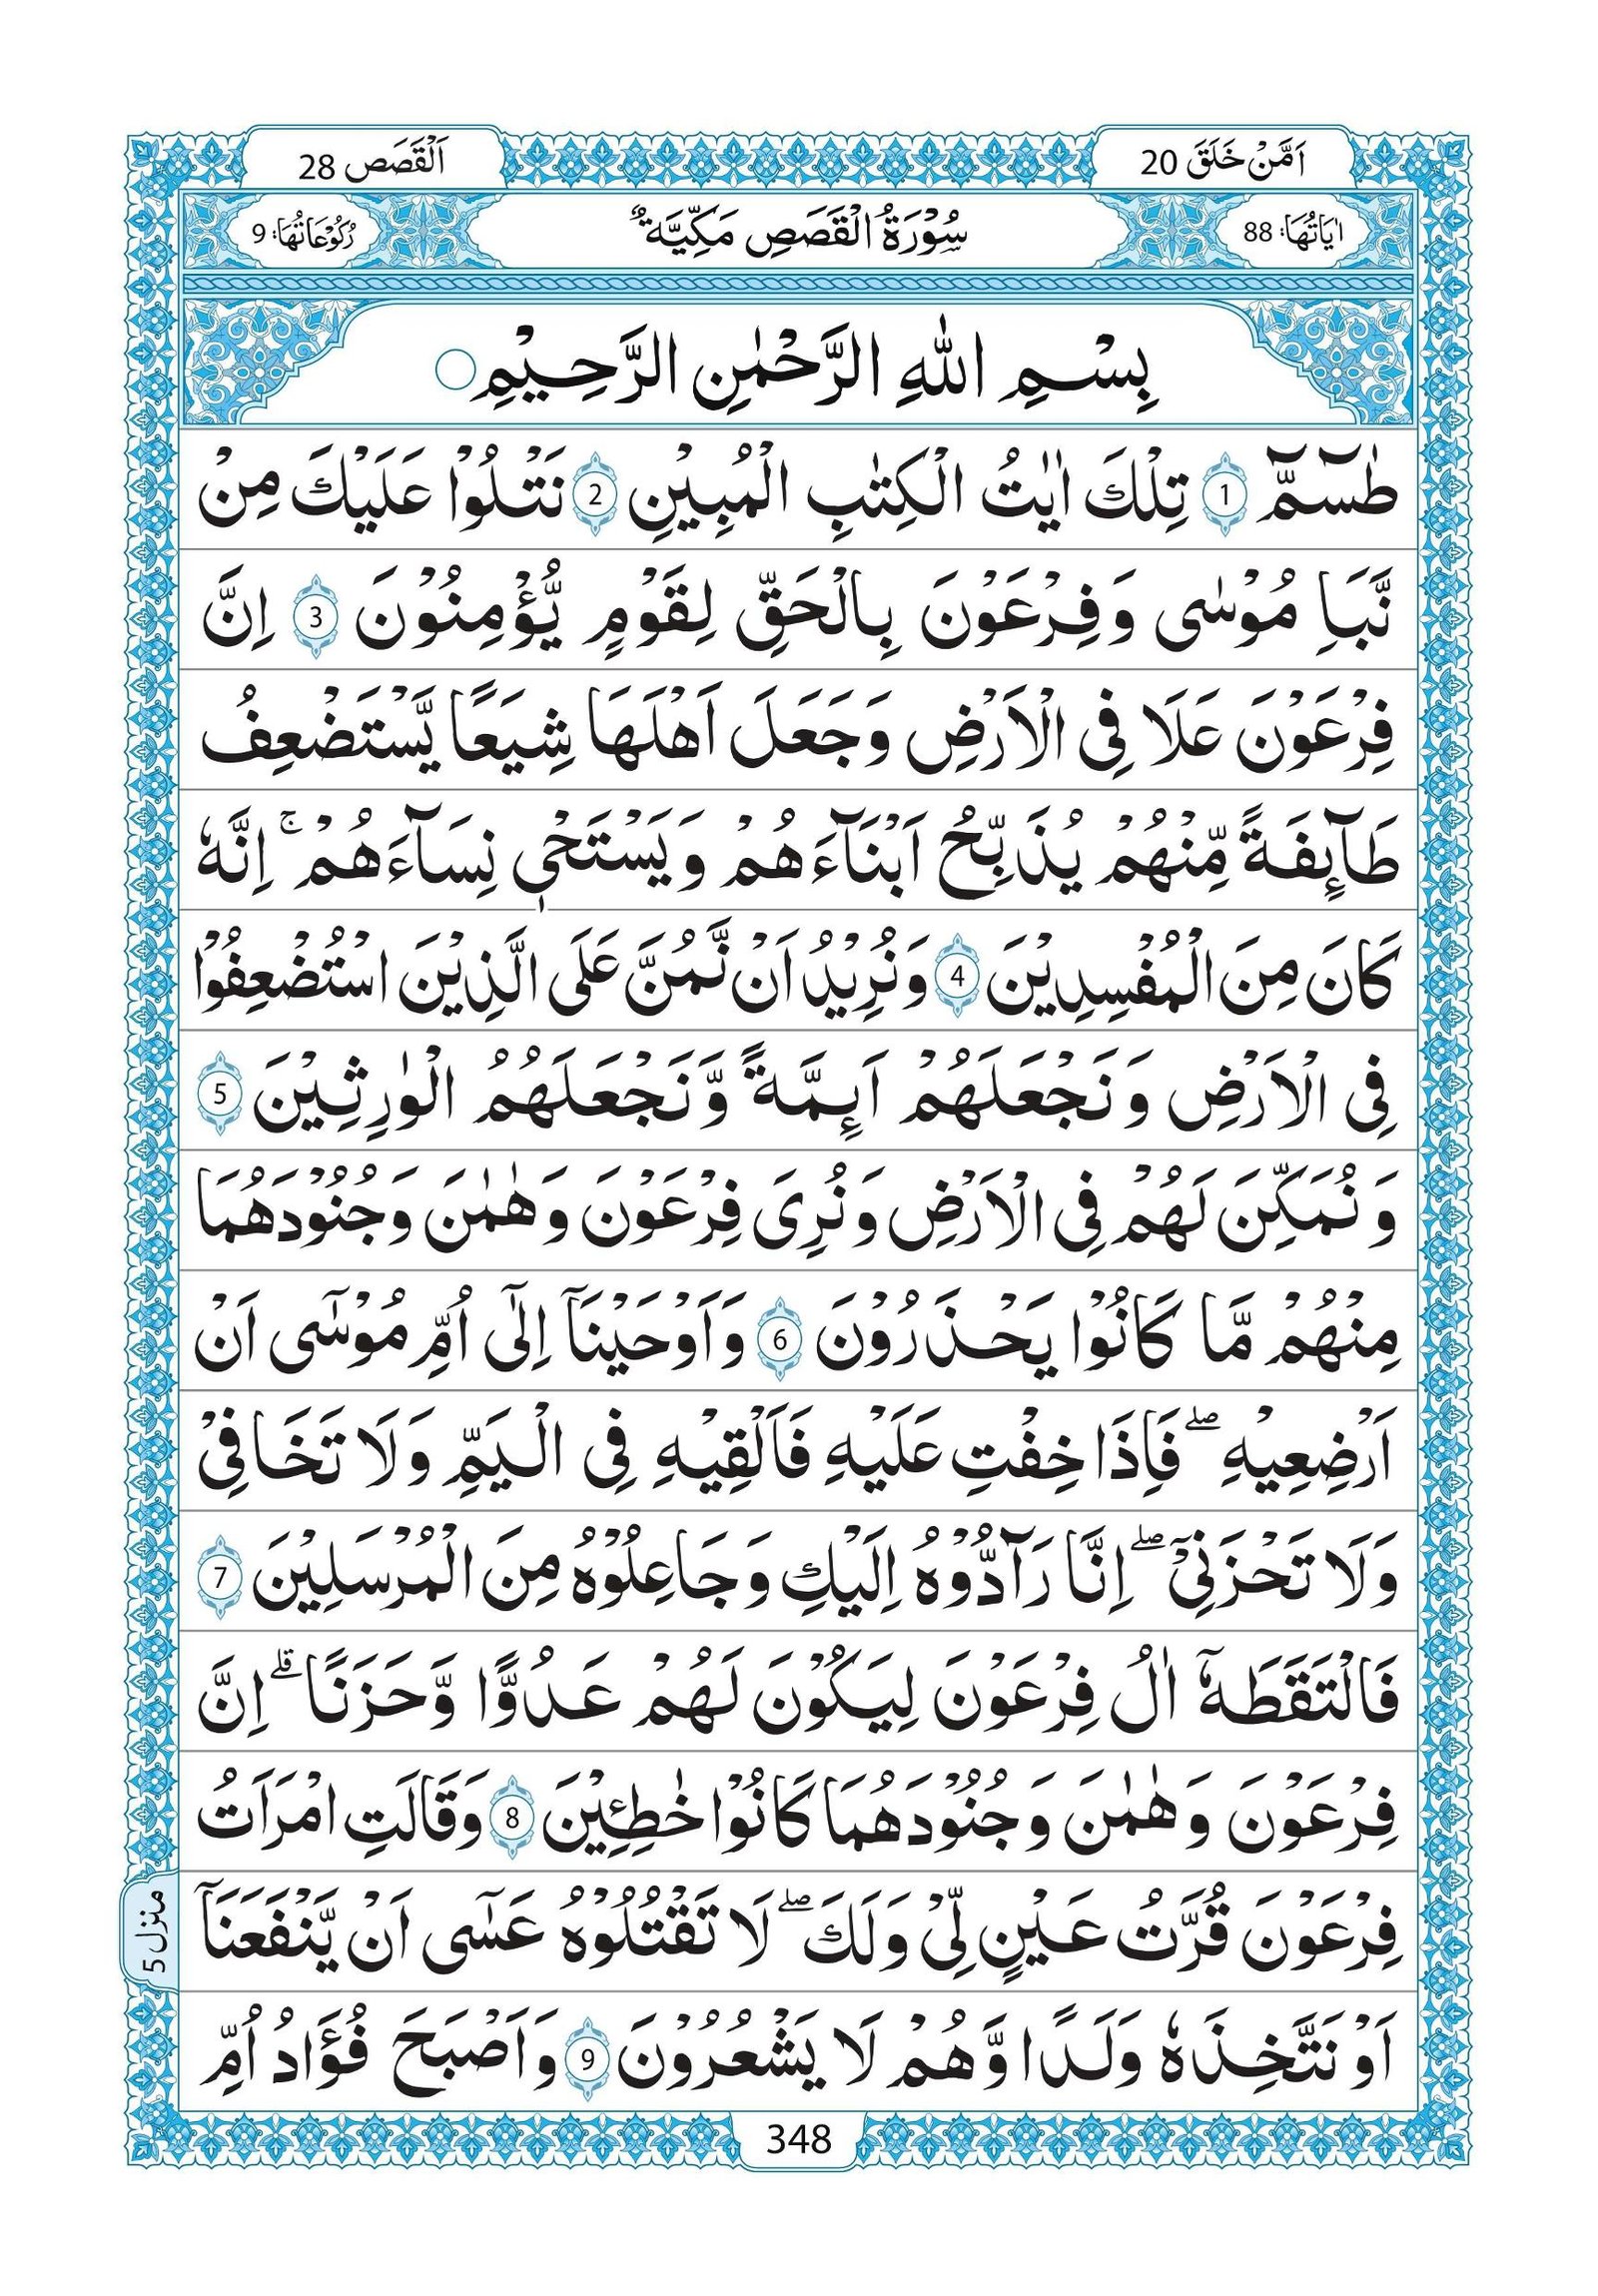 اَمَّنْ خَلَقَ 20
اَلْقَصَص 28
اٰيَاتُهَا: 88
سُوْرَةُ الْقَصَصِ مَكِّيَّةٌ
رُكُوْعَاتُهَا: 9
بِسْمِ اللّٰهِ الرَّحْمٰنِ الرَّحِيْمِ
طٰسٓمّٓ 1 تِلْكَ اٰيٰتُ الْكِتٰبِ الْمُبِيْنِ 2 نَتْلُوْا عَلَيْكَ مِنْ
نَّبَاِ مُوْسٰى وَفِرْعَوْنَ بِالْحَقِّ لِقَوْمٍ يُّؤْمِنُوْنَ 3 اِنَّ
فِرْعَوْنَ عَلَا فِى الْاَرْضِ وَجَعَلَ اَهْلَهَا شِيَعًا يَّسْتَضْعِفُ
طَآٮِٕفَةً مِّنْهُمْ يُذَبِّحُ اَبْنَآءَهُمْ وَيَسْتَحْىٖ نِسَآءَهُمْ ۚ اِنَّهٗ
كَانَ مِنَ الْمُفْسِدِيْنَ 4 وَنُرِيْدُ اَنْ نَّمُنَّ عَلَى الَّذِيْنَ اسْتُضْعِفُوْا
فِى الْاَرْضِ وَنَجْعَلَهُمْ اَٮِٕمَّةً وَّنَجْعَلَهُمُ الْوٰرِثِيْنَ 5
وَنُمَكِّنَ لَهُمْ فِى الْاَرْضِ وَنُرِىَ فِرْعَوْنَ وَهٰمٰنَ وَجُنُوْدَهُمَا
مِنْهُمْ مَّا كَانُوْا يَحْذَرُوْنَ 6 وَاَوْحَيْنَآ اِلٰٓى اُمِّ مُوْسٰٓى اَنْ
اَرْضِعِيْهِ ۖ فَاِذَا خِفْتِ عَلَيْهِ فَاَلْقِيْهِ فِى الْيَمِّ وَلَا تَخَافِىْ
وَلَا تَحْزَنِىْٓ ۖ اِنَّا رَآدُّوْهُ اِلَيْكِ وَجَاعِلُوْهُ مِنَ الْمُرْسَلِيْنَ 7
فَالْتَقَطَهٗٓ اٰلُ فِرْعَوْنَ لِيَكُوْنَ لَهُمْ عَدُوًّا وَّحَزَنًا ۗ اِنَّ
فِرْعَوْنَ وَهٰمٰنَ وَجُنُوْدَهُمَا كَانُوْا خٰطِـِٕيْنَ 8 وَقَالَتِ امْرَاَتُ
فِرْعَوْنَ قُرَّتُ عَيْنٍ لِّىْ وَلَكَ ۖ لَا تَقْتُلُوْهُ عَسٰٓى اَنْ يَّنْفَعَنَآ
اَوْ نَتَّخِذَهٗ وَلَدًا وَّهُمْ لَا يَشْعُرُوْنَ 9 وَاَصْبَحَ فُؤَادُ اُمِّ
منزل 5
348